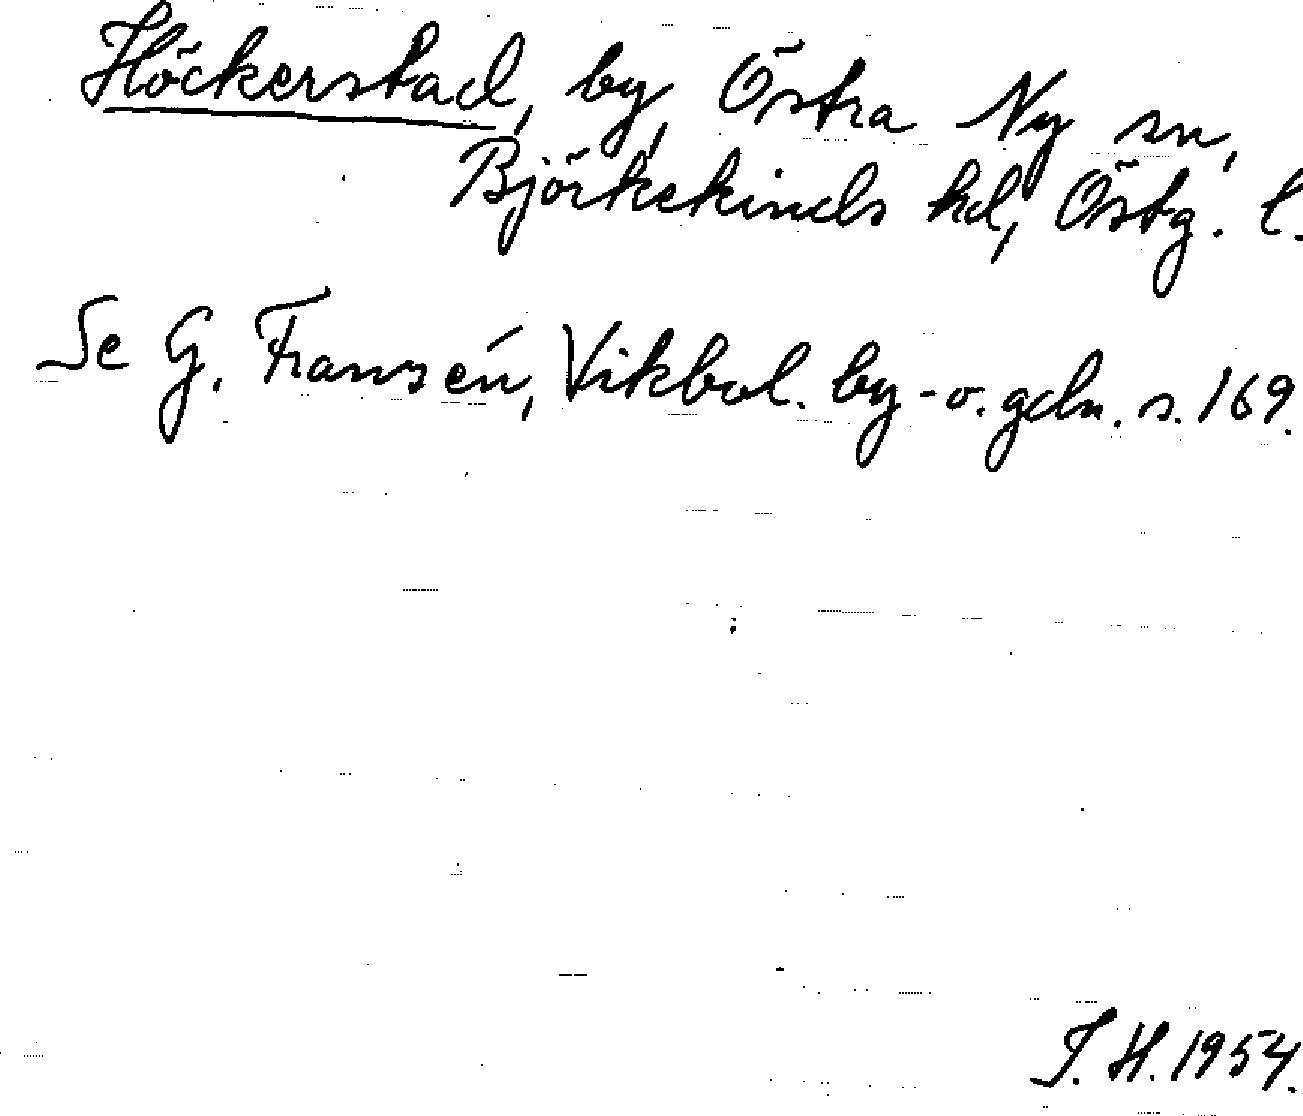 Höckerstad, by, Östra Ny sn,
Björkekinds hd, Östg. l.
Se G. Fransén, Vikbol. by- o. gdn. s. 169.
J. H. 1954.